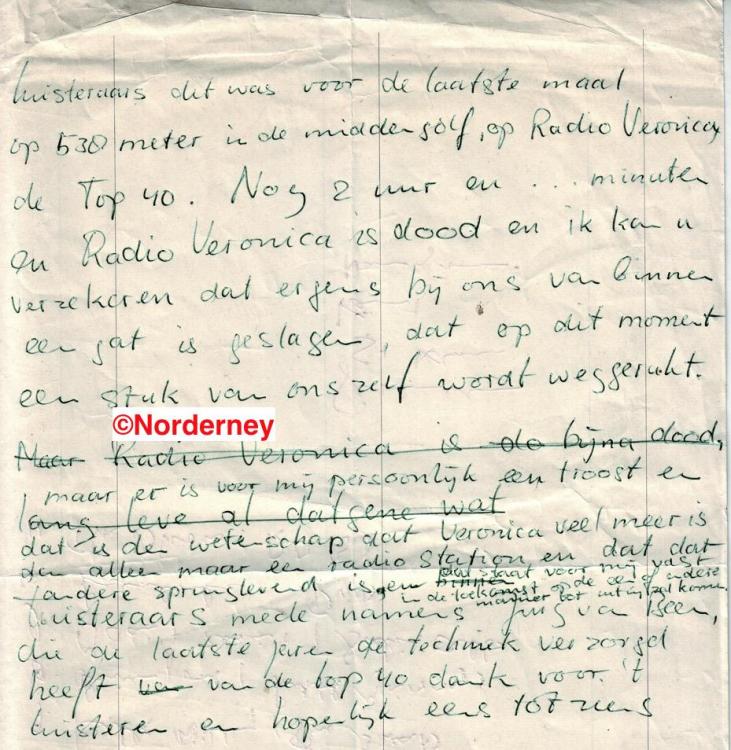 luisteraars dit was voor de laatste maal
op 538 meter in de middengolf, op Radio Veronica,
de Top 40. Nog 2 uur en ... minuten
en Radio Veronica is dood en ik kan u
verzekeren dat ergens bij ons van binnen
een gat is geslagen, dat op dit moment
een stuk van ons zelf wordt weggerukt.
©Norderney
Maar Radio Veronica is do bijna dood,
maar er is voor mij persoonlijk een troost en
lang leve al datgene wat
dat is de wetenschap dat Veronica veel meer is
dan alleen maar een radio station en dat dat
andere springlevend is, en dat staat voor mij vast
in de toekomst op de een of andere
manier tot uiting zal komen.
luisteraars mede namens Jurg van Been,
die de laatste jaren de techniek verzorgd
heeft van de top 40 dank voor 't
luisteren en hopelijk eens tot ziens